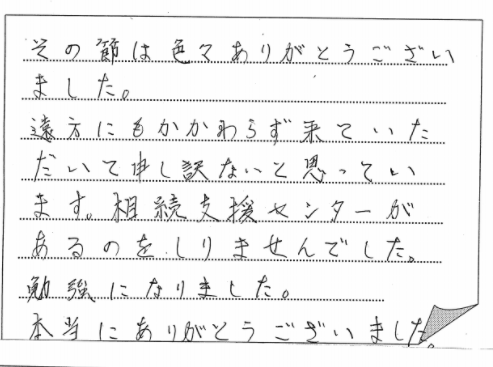 その節は色々ありがとうござい
ました。
遠方にもかかわらず来ていた
だいて申し訳ないと思ってい
ます。相続支援センターが
あるのをしりませんでした。
勉強になりました。
本当にありがとうございました。